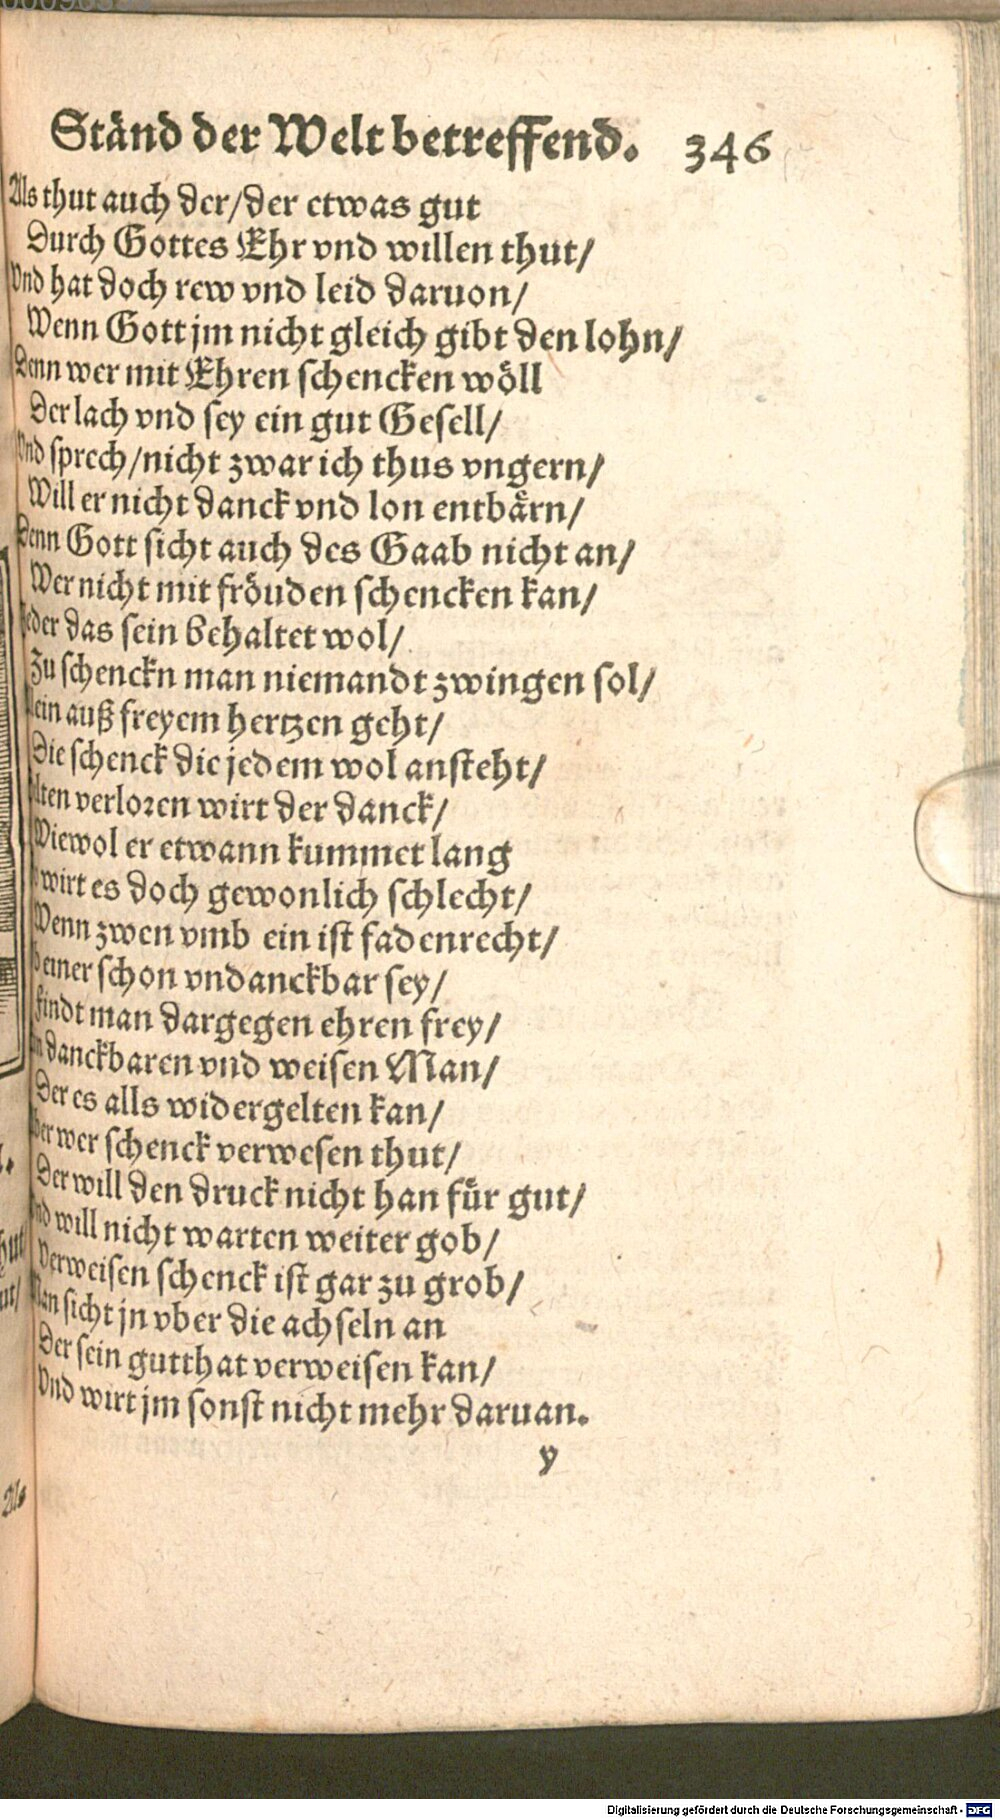 Ständ der Welt betreffend. 346
Als thut auch der/der etwas gut
Durch Gottes Ehr vnd willen thut/
Vnd hat doch rew vnd leid daruon/
Wenn Gott jm nicht gleich gibt den lohn/
Denn wer mit Ehren schencken wöll
Der lach vnd sey ein gut Gesell/
Vnd sprech/nicht zwar ich thus vngern/
Will er nicht danck vnd lon entbärn/
Denn Gott sicht auch des Gaab nicht an/
Wer nicht mit fröuden schencken kan/
Jeder das sein behaltet wol/
Zu schenckn man niemandt zwingen sol/
auß freyem hertzen geht/
Die schenck die jedem wol ansteht/
verlorẽn wirt der danck/
Wiewol er etwann kummet lang
wirt es doch gewonlich schlecht/
Wenn zwen vmb ein ist fadenrecht/
einer schon vndanckbar sey/
Findt man dargegen ehren frey/
danckbaren vnd weisen Man/
Der es alls widergelten kan/
wer schenck verwesen thut/
Der will den druck nicht han für gut/
Vnd will nicht warten weiter gob/
Verweisen schenck ist gar zu grob/
Man sicht jn vber die achseln an
Der sein gutthat verweisen kan/
Vnd wirt jm sonst nicht mehr daruan.
y
Als
Digitalisierung gefördert durch die Deutsche Forschungsgemeinschaft - DFG